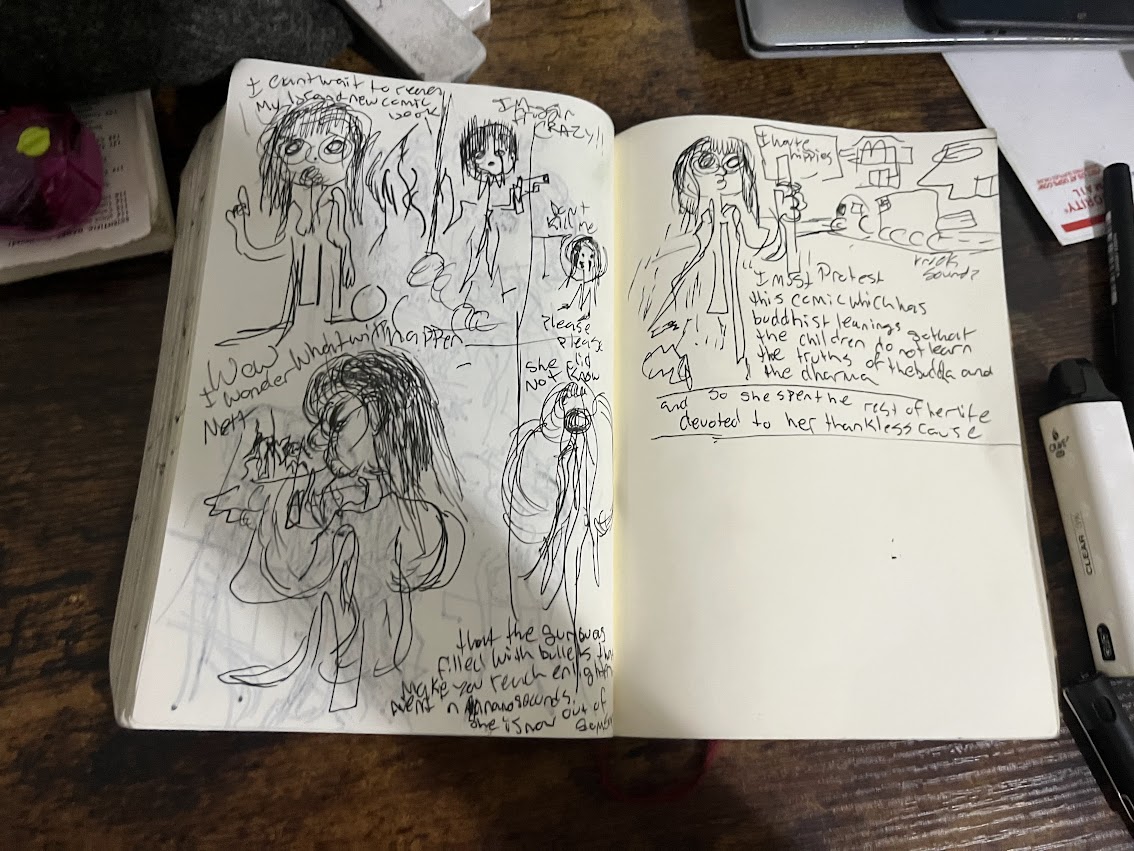 I can't wait to
My brand new comic
book
I
CRAZY!!
DON'T
Kill me
please
please
Wow
I wonder what will happen
Next
she did
not know
that the gun was
filled with bullets
Make you reach enlighten
ment n nanoseconds.
she is now out of
I hate
hippies
truck
sound?
"I must Protest
this comic which has
buddhist leanings so that
the children do not learn
the truths of the budda and
the dharma
and so she spent the rest of her life
devoted to her thankless cause
PRIORITY
MAIL
CLEAR